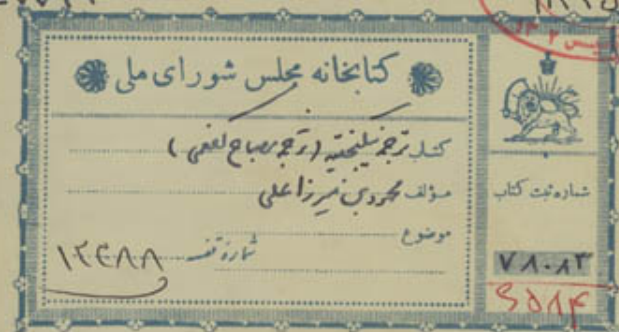 کتابخانه مجلس شورای ملی
کتاب ترجمه (ترجمه مصباح کفعمی)
مؤلف محمود بن میرزا علی
موضوع
شماره قفسه ۱۲۴۸۸
شماره ثبت کتاب
۷۸۰۸۲